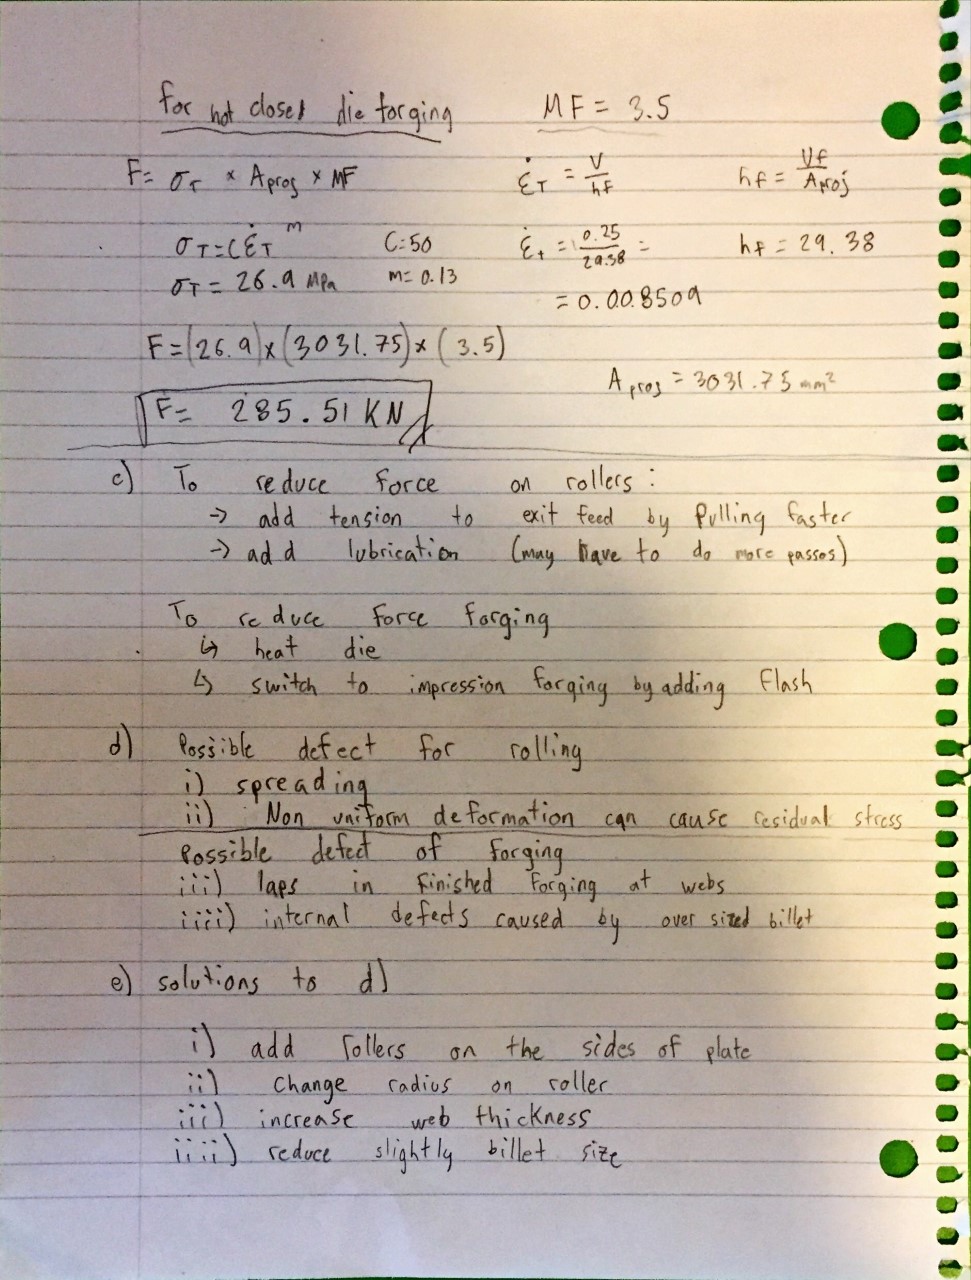 for hot closed die forging MF = 3.5
F = σT × Aproj × MF ε̇T = V/hf hf = Vf/Aproj
σT = C ε̇T^m C=50 ε̇t = 0.25/29.38 = hf = 29.38
σT = 26.9 MPa m= 0.13 = 0.008509
F = (26.9) × (3031.75) × (3.5)
Aproj = 3031.75 mm²
F= 285.51 KN
c) To reduce force on rollers :
→ add tension to exit feed by pulling faster
→ add lubrication (may have to do more passes)
To reduce force forging
↳ heat die
↳ switch to impression forging by adding flash
d) Possible defect for rolling
i) spreading
ii) Non uniform deformation can cause residual stress
Possible defect of forging
iii) laps in finished forging at webs
iiii) internal defects caused by over sized billet
e) solutions to d)
i) add rollers on the sides of plate
ii) change radius on roller
iii) increase web thickness
iiii) reduce slightly billet size